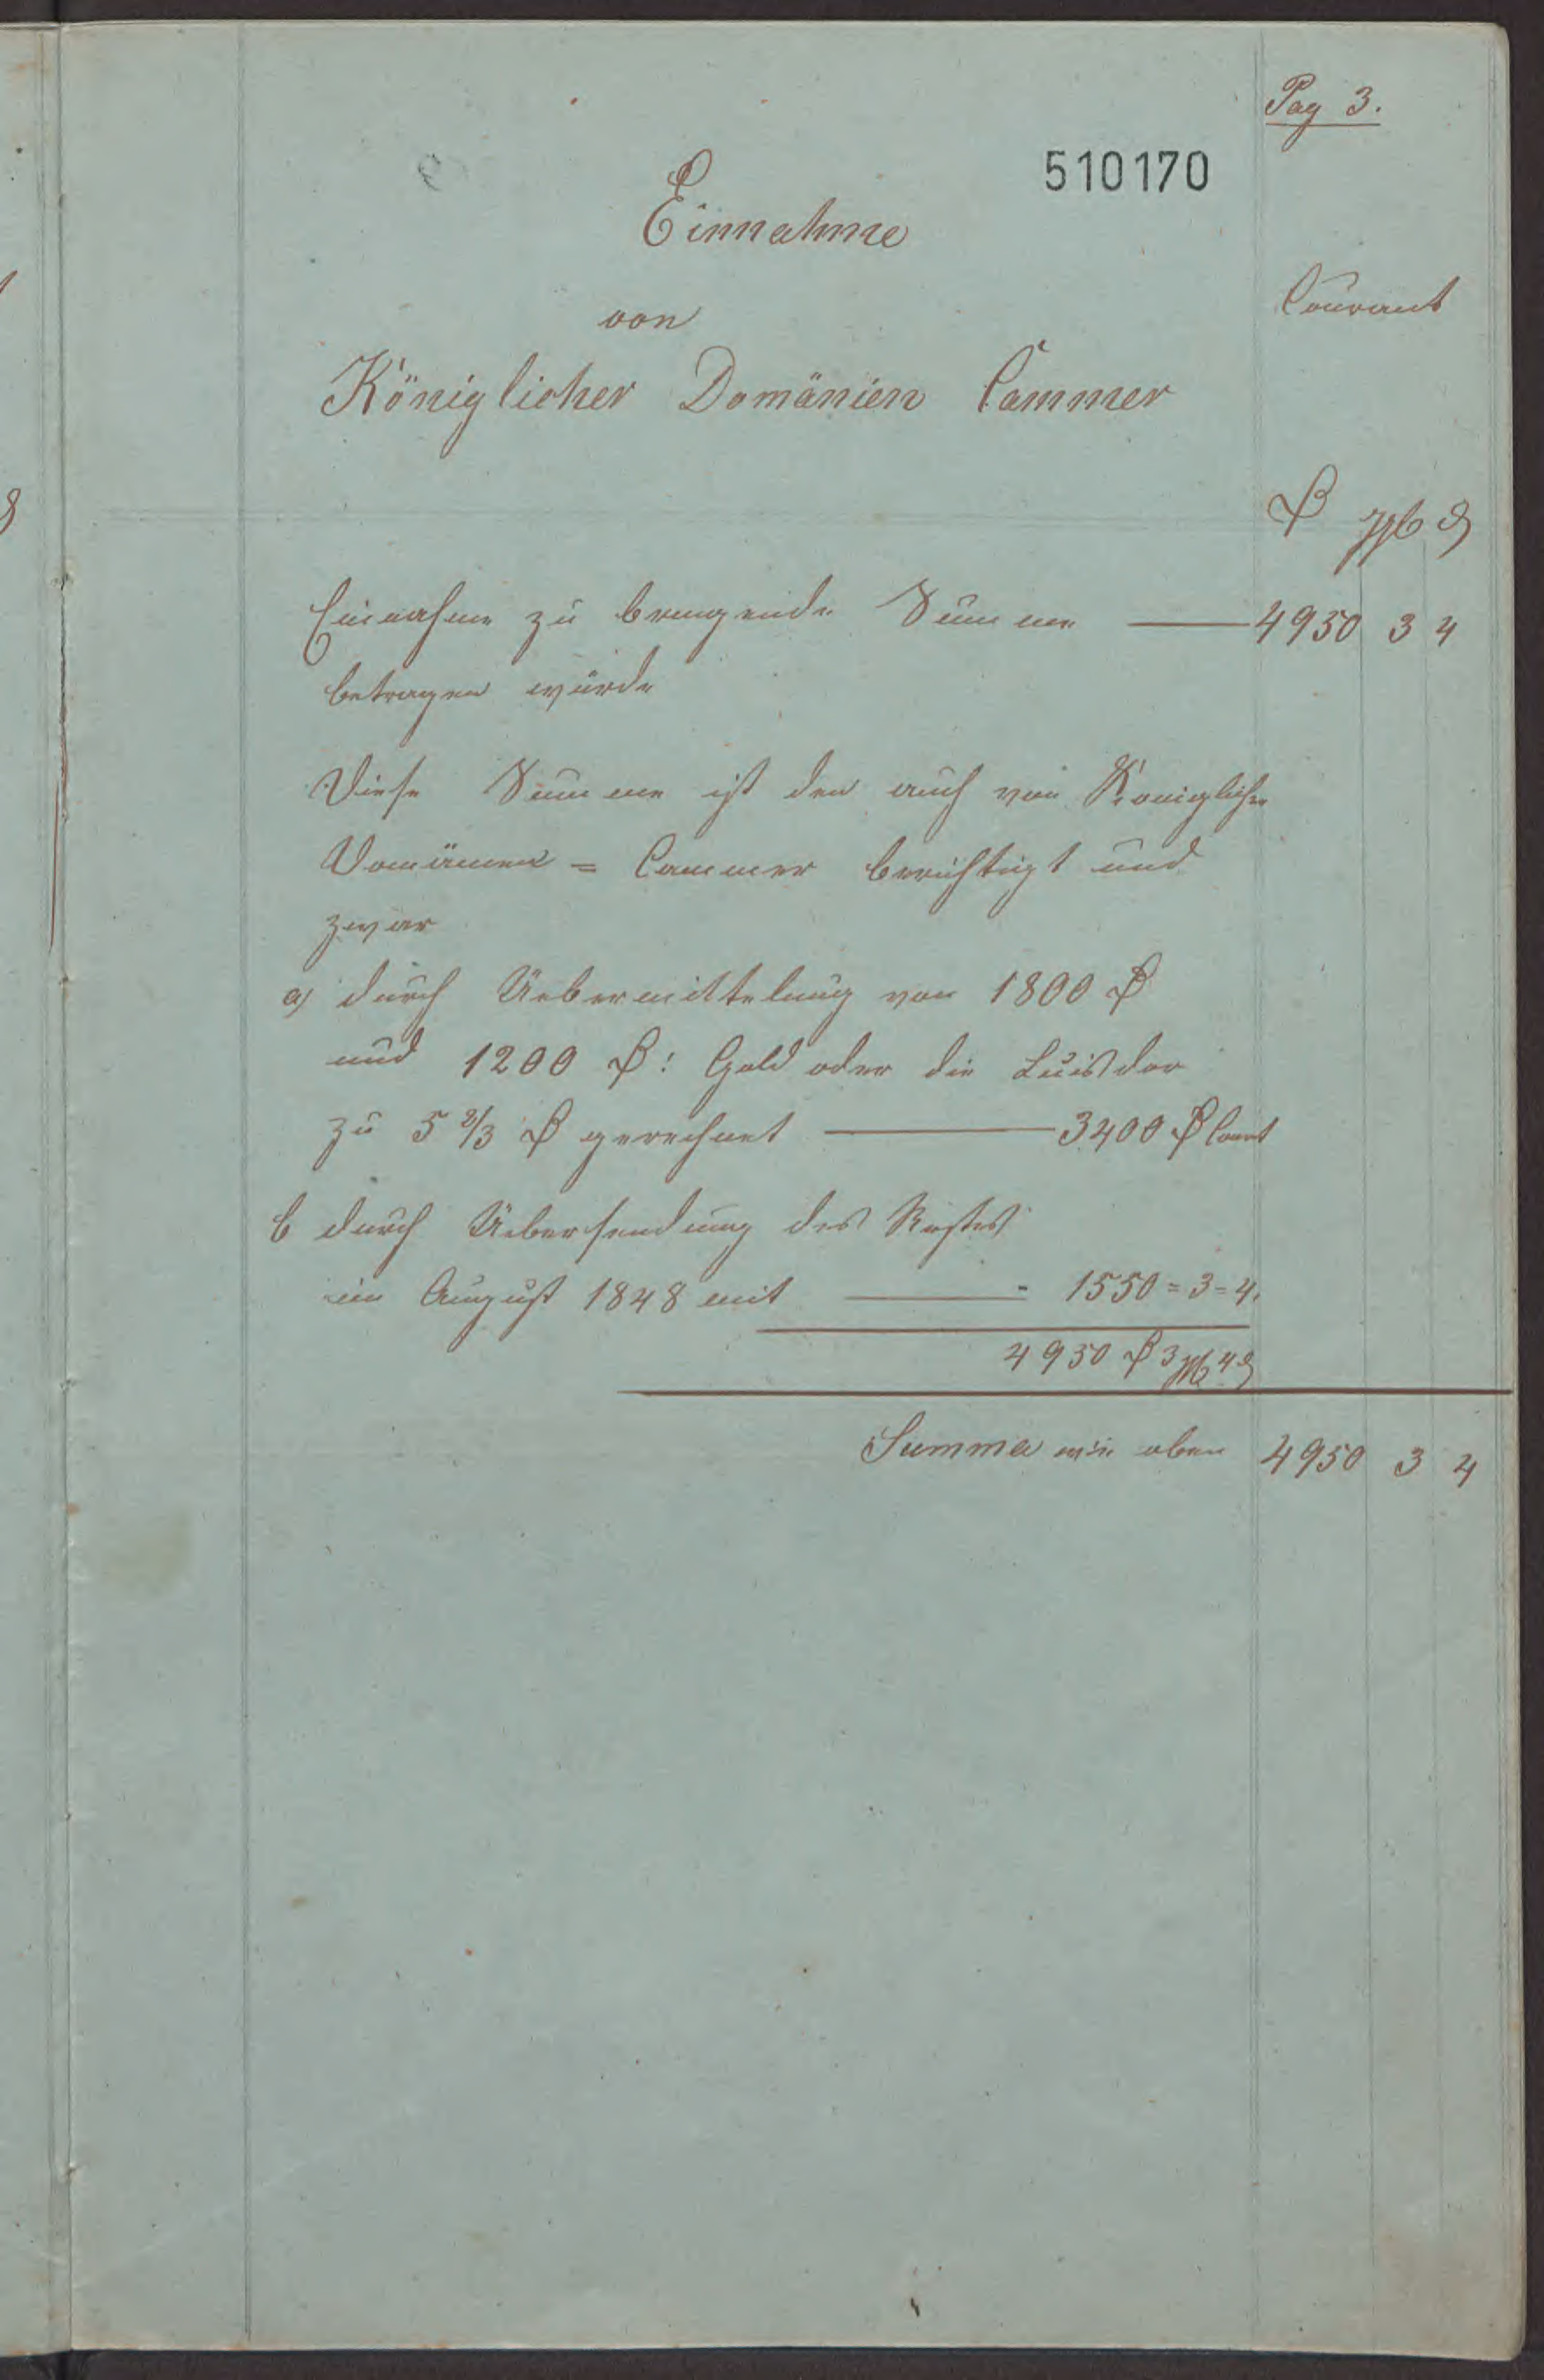 Pag 3.
510170
Einnahme
von
Courant
Königlicher Domänien Cammer
₰ ggl ₰
Einnahme zu bringende Summe — 4950 3 4
betragen würde
Diese Summe ist den auch von Königlicher
Domänen = Cammer berichtigt und
zwar
a) durch Uebermittelung von 1800 ₰
und 1200 ₰: Gold oder die Luisdor
zu 5 2/3 ₰ gerechnet — 3400 ₰ Court
b durch Uebersendung des Restes
im August 1848 mit — - 1550 = 3 = 4.
4950 ₰ 3 ggl 4 ₰
Summa wie oben 4950 3 4